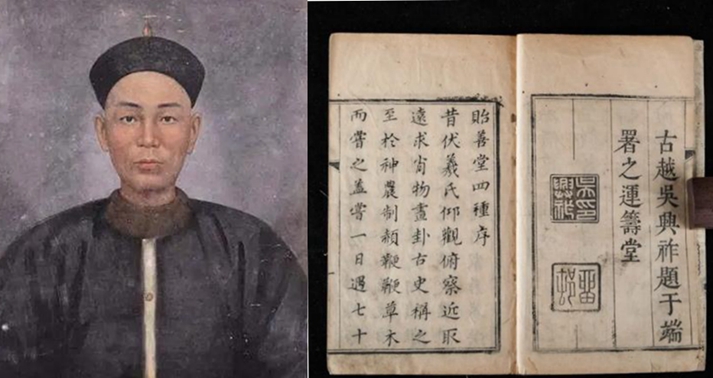 古越吳興祚題于端
署之運籌堂
吳印興祚
留邨
貽善堂四種序
昔伏羲氏仰觀俯察近取
遠求肖物畫卦古史稱之
至於神農制頳鞭鞭草木
而嘗之蓋嘗一日遇七十